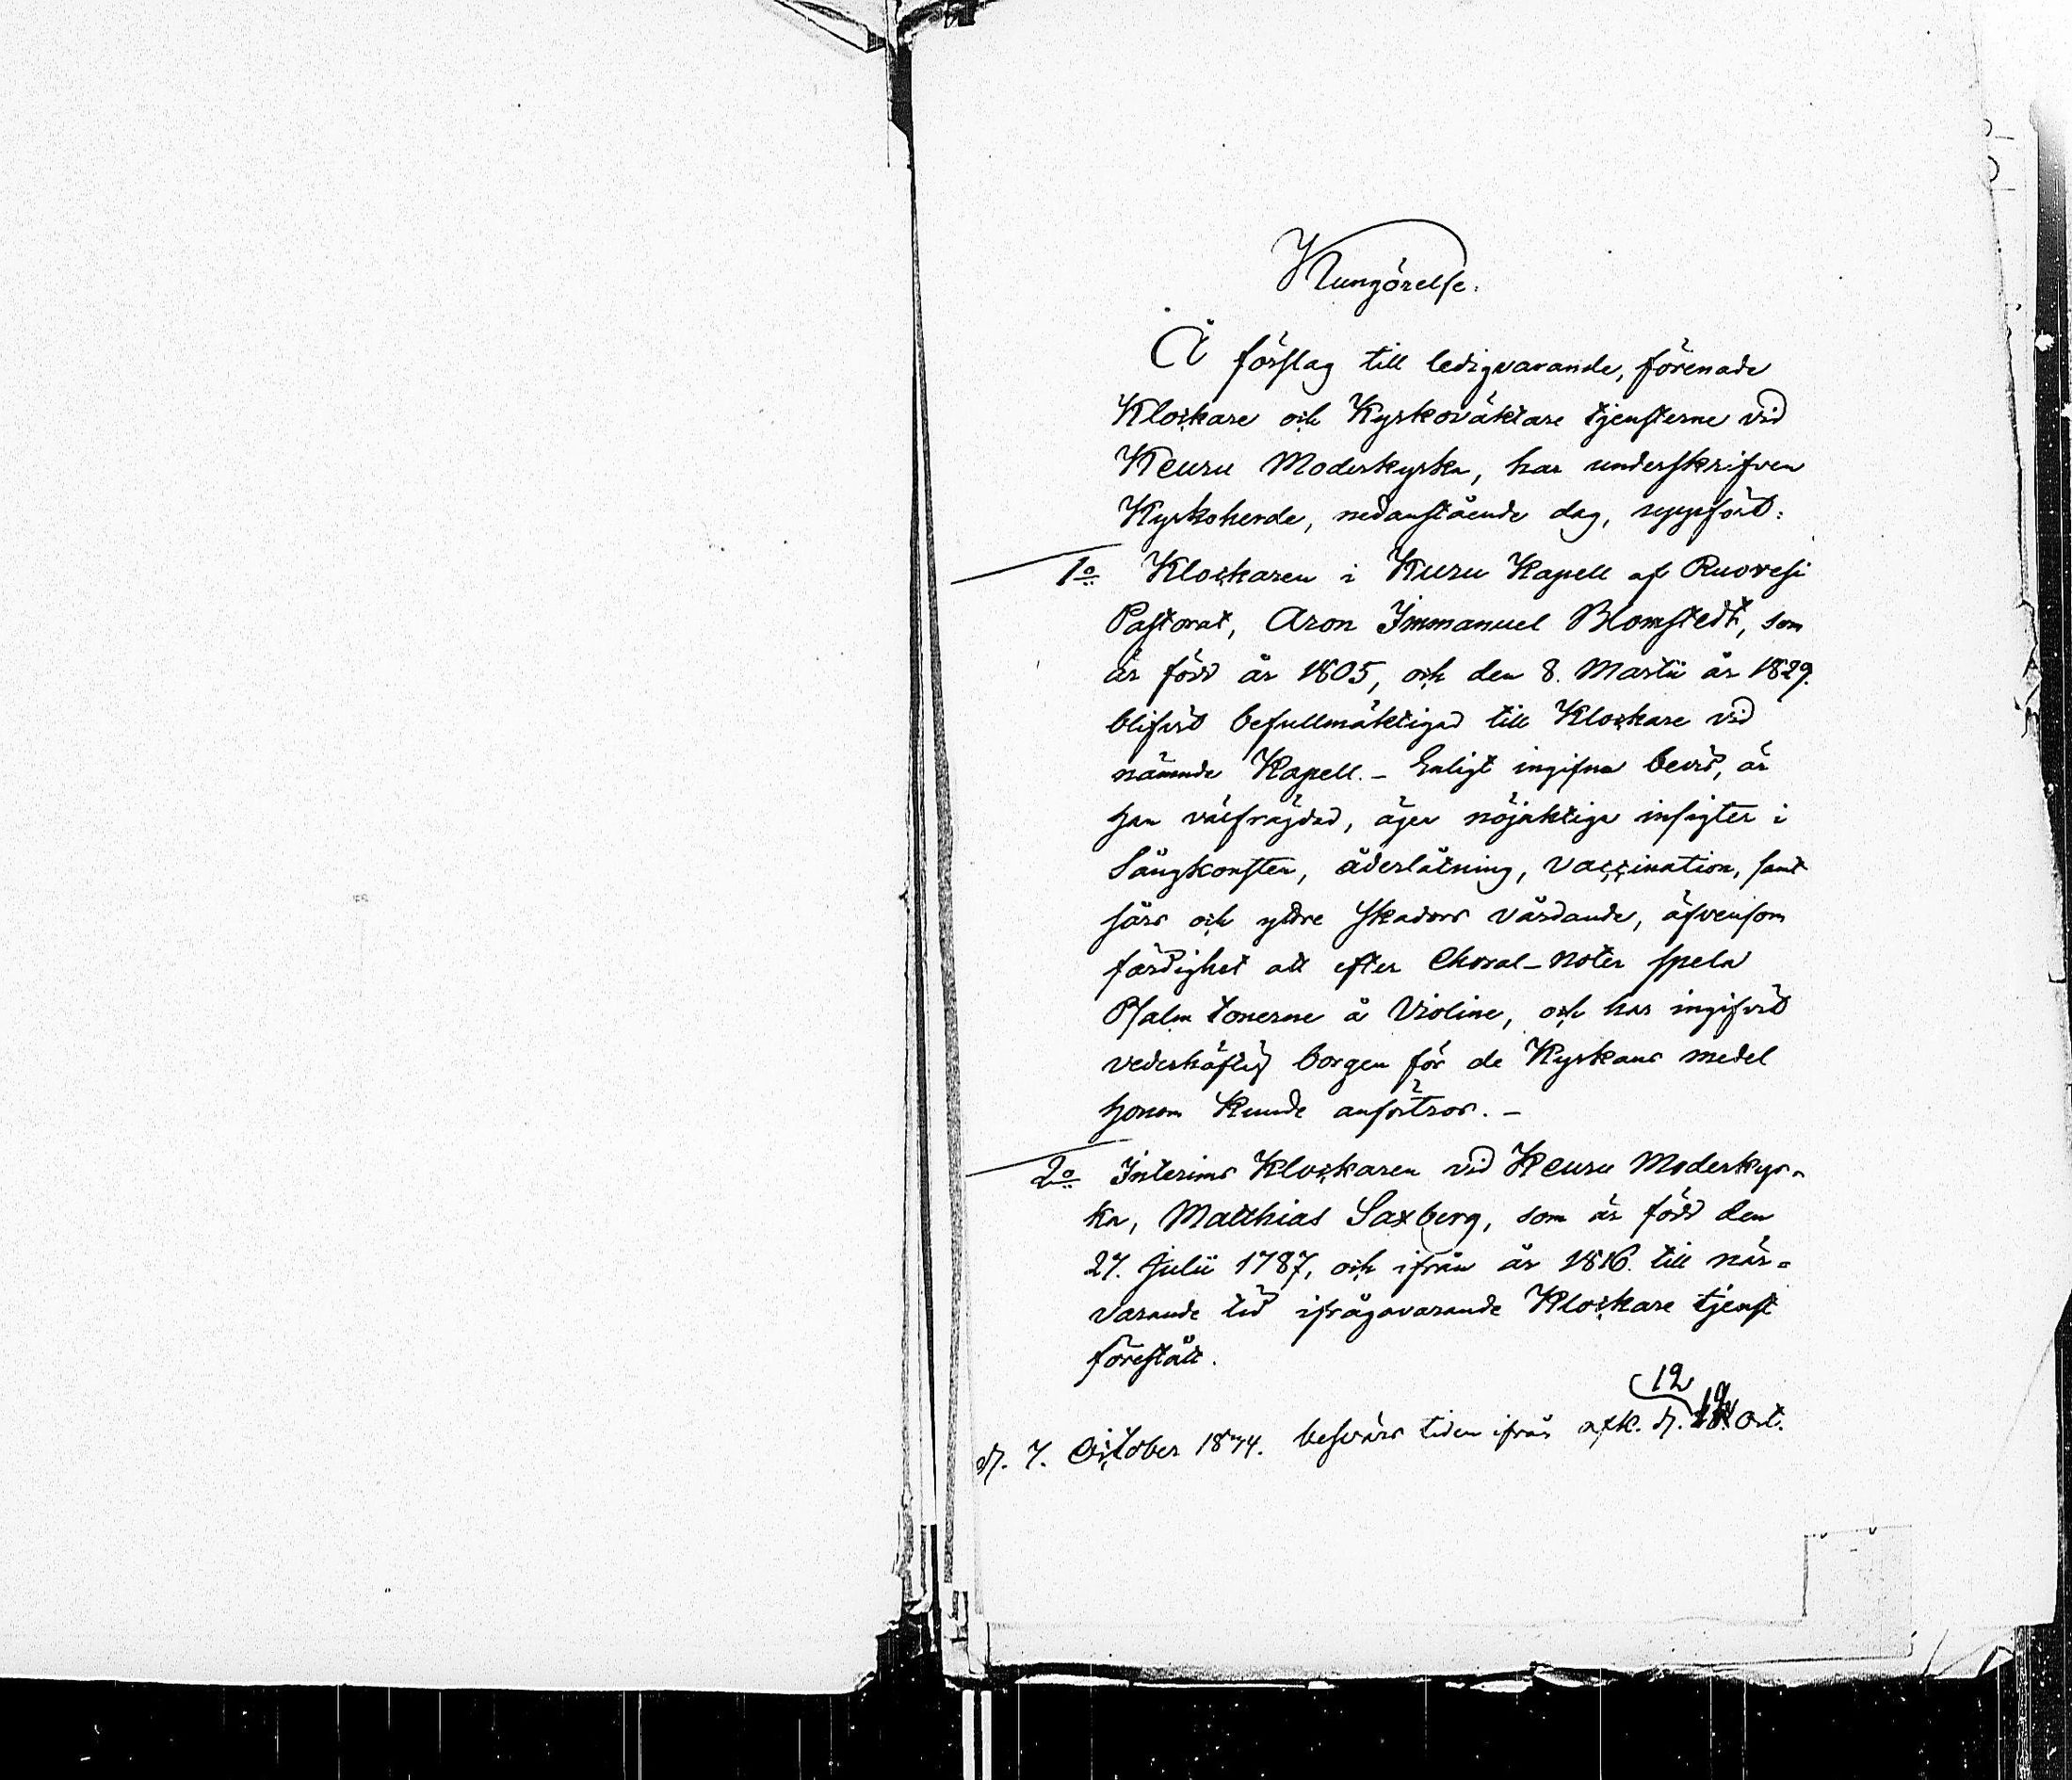 Kungörelse.
Å förslag till ledigvarande, förenade
Klockare och Kyrkoväktare tjensterne vid
Keuru Moderkyrka, har underskrifven
Kyrkoherde, nedanstående dag, uppfört:
1o Klockaren i Kuru Kapell af Ruovesi
Pastorat, Aron Immanuel Blomstedt, som
är född år 1805, och den 8. Martii år 1829.
blifvit befullmäktigad till Klockare vid
nämnde Kapell. - Enligt ingifna bevis, är
han välfrägdad, äger nöjaktiga insigter i
Sångkonsten, åderlåtning, vaccination, samt
sårs och yttre skadors vårdande, äfvensom
färdighet att efter Choral-noter spela
Psalm tonerne å Violine, och har ingifvit
vederhäftig borgen för de Kyrkans medel
honom kunde anförtros. -
2o Interims Klockaren vid Keuru Moderkyr-
ka, Matthias Saxberg, som är född den
27. Julii 1787, och ifrån år 1816. till när-
varande tid ifrågavarande Klockare tjenst
förestått.
12
d. 7. October 1844. besvärs tiden ifrån d. Oct.